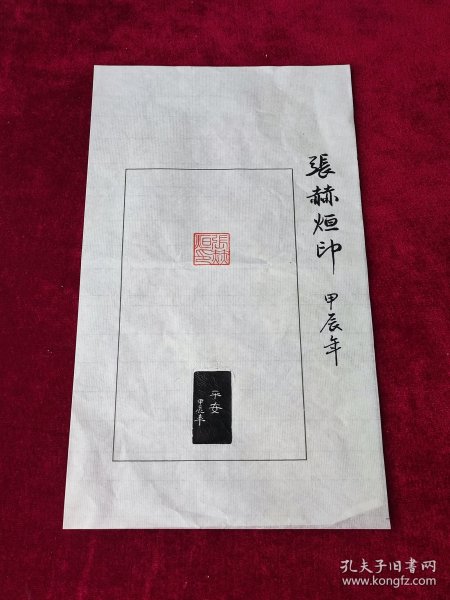 張赫烜印 甲辰年
張赫
烜印
平安
甲辰年
孔夫子旧书网
www.kongfz.com